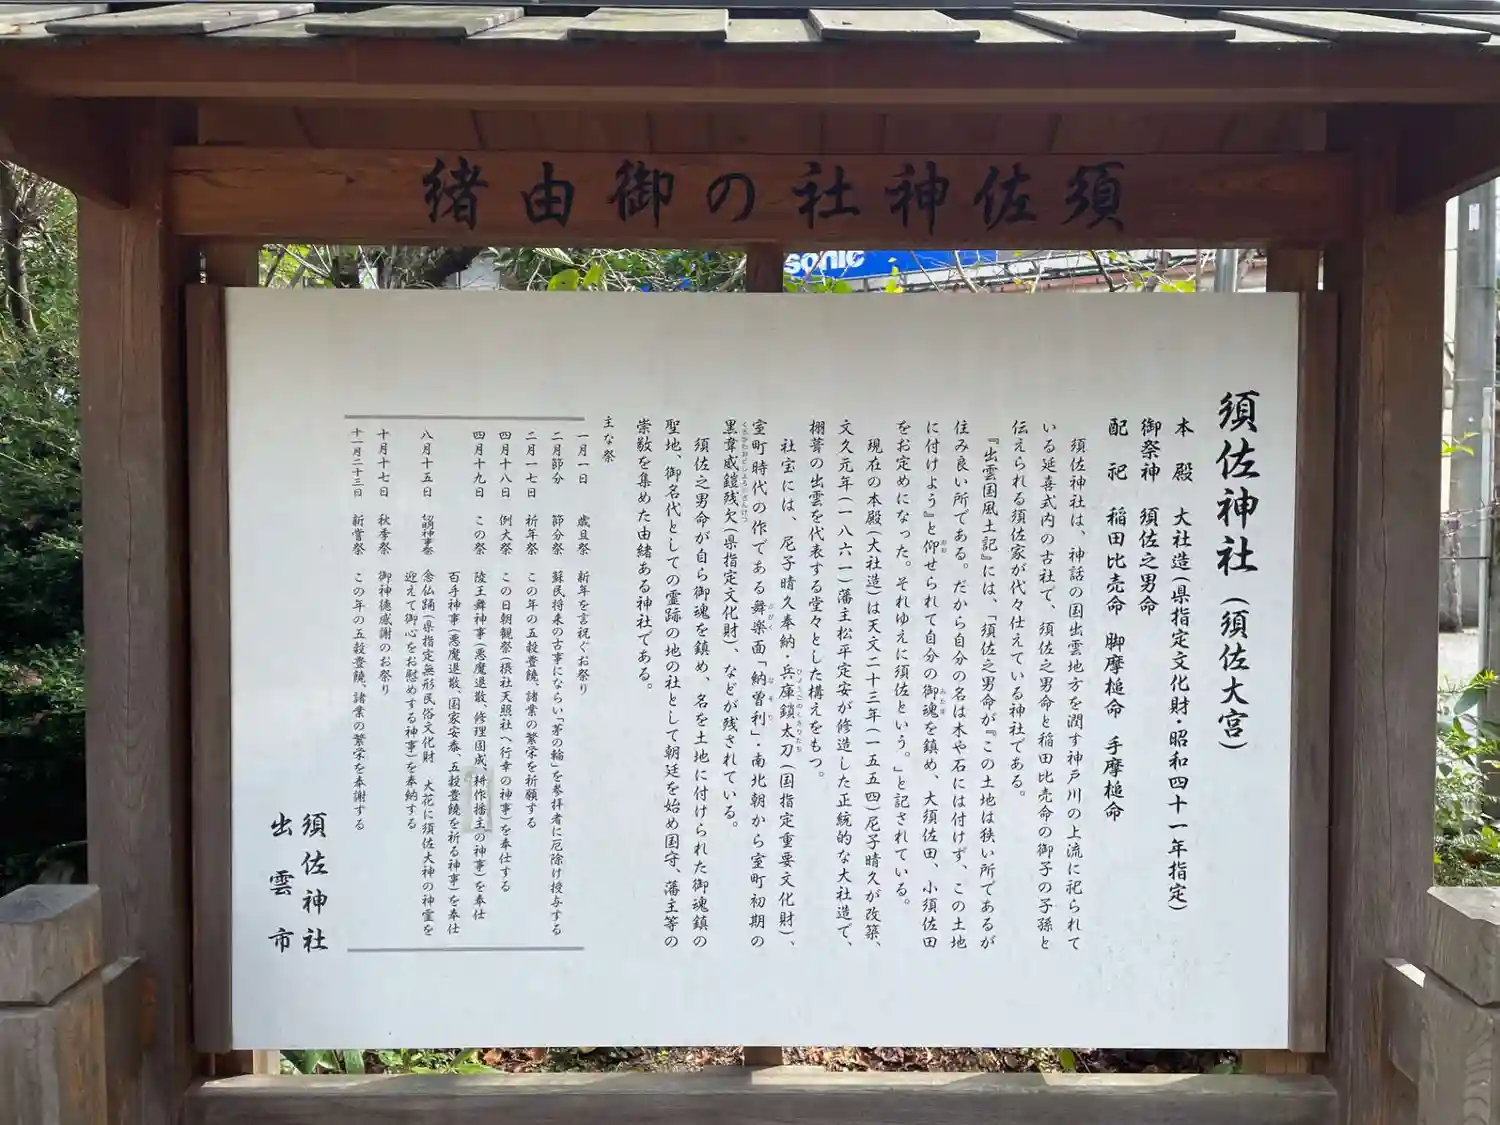 須佐神社の御由緒
sonic
須佐神社（須佐大宮）
本 殿 大社造（県指定文化財・昭和四十一年指定）
御祭神 須佐之男命
配 祀 稲田比売命 脚摩槌命 手摩槌命
須佐神社は、神話の国出雲地方を潤す神戸川の上流に祀られて
いる延喜式内の古社で、須佐之男命と稲田比売命の御子の子孫と
伝えられる須佐家が代々仕えている神社である。
『出雲国風土記』には、「須佐之男命が『この土地は狭い所であるが
住み良い所である。だから自分の名は木や石には付けず、この土地
に付けよう』と仰せられて自分の御魂を鎮め、大須佐田、小須佐田
をお定めになった。それゆえに須佐という。」と記されている。
現在の本殿（大社造）は天文二十三年（一五五四）尼子晴久が改築、
文久元年（一八六一）藩主松平定安が修造した正統的な大社造で、
棚葺の出雲を代表する堂々とした構えをもつ。
社宝には、尼子晴久奉納・兵庫鎖太刀（国指定重要文化財）、
室町時代の作である舞楽面「納曽利」・南北朝から室町初期の
黒韋威鎧残欠（県指定文化財）、などが残されている。
須佐之男命が自ら御魂を鎮め、名を土地に付けられた御魂鎮の
聖地、御名代としての霊跡の地の社として朝廷を始め国守、藩主等の
崇敬を集めた由緒ある神社である。
主な祭
一月一日 歳旦祭 新年を言祝ぐお祭り
二月節分 節分祭 蘇民将来の古事にならい「茅の輪」を参拝者に厄除け授与する
二月一七日 祈年祭 この年の五穀豊饒、諸業の繁栄を祈願する
四月十八日 例大祭 この日朝覲祭（摂社天照社へ行幸の神事）を奉仕する
四月十九日 この祭 陵王舞神事（悪魔退散、修理固成、耕作播主の神事）を奉仕
百手神事（悪魔退散、国家安泰、五穀豊饒を祈る神事）を奉仕
八月十五日 切明神事祭 念仏踊（県指定無形民俗文化財 大花に須佐大神の神霊を
迎えて御心をお慰めする神事）を奉納する
十月十七日 秋季祭 御神徳感謝のお祭り
十一月二十三日 新嘗祭 この年の五穀豊饒、諸業の繁栄を奉謝する
須佐神社
出雲市